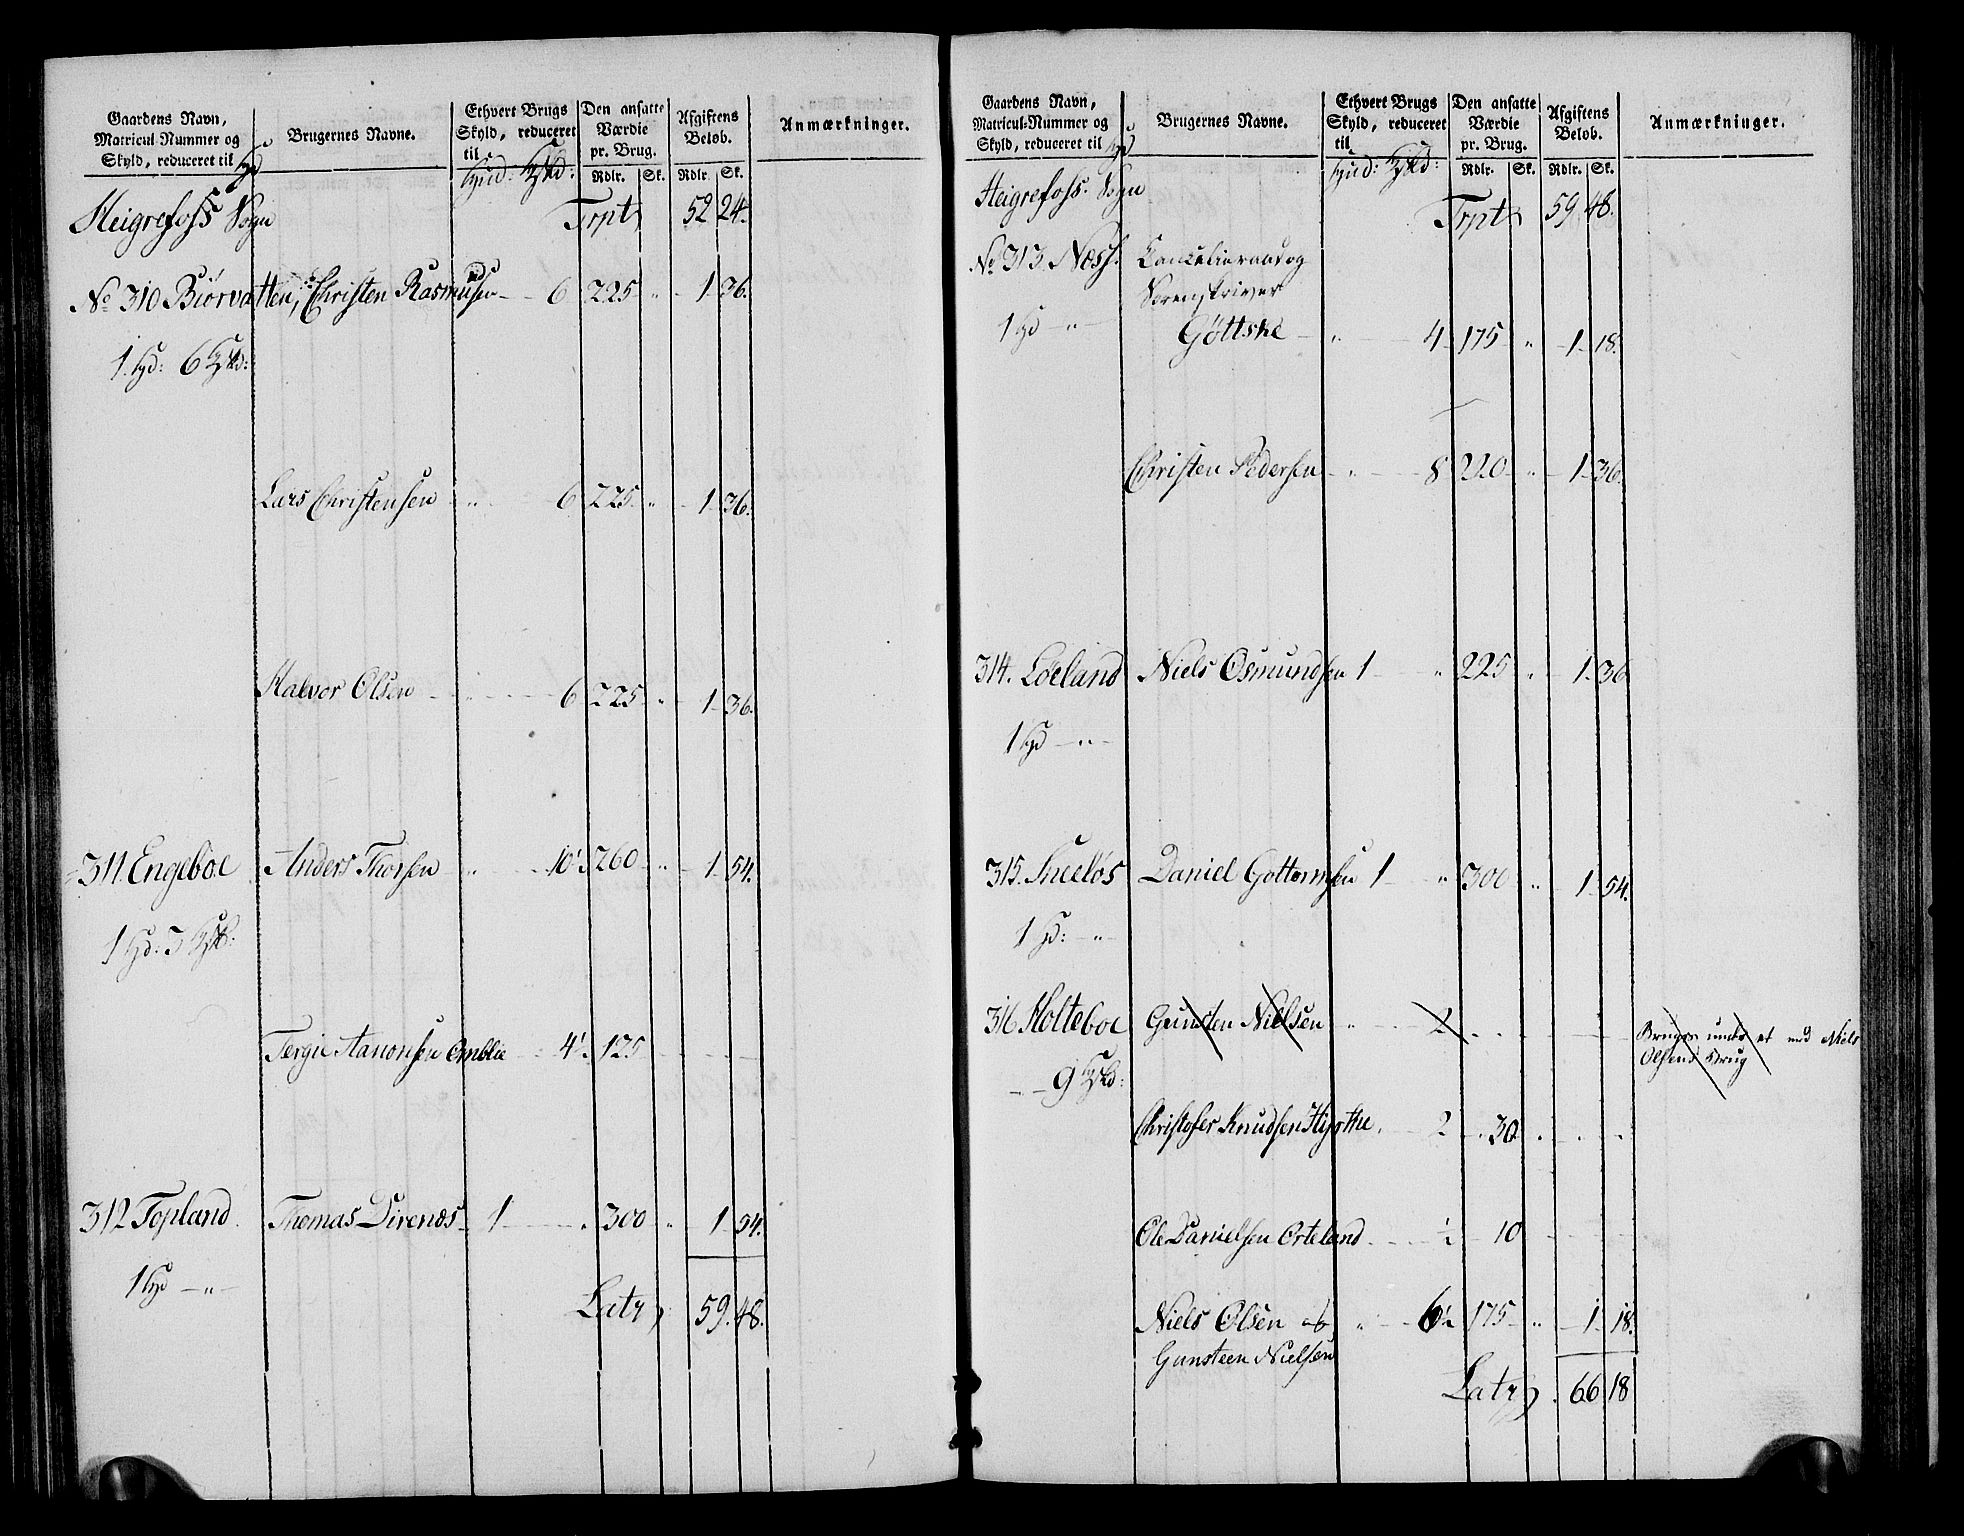 Gaardens Navn, Matricul-Nummer og Skyld, reduceret til Hd
Brugernes Navne.
Ethvert Brugs Skyld, reduceret til
Hud:
Den ansatte Værdie pr. Brug.
Rdlr. Sk.
Afgiftens Beløb.
Rdlr. Sk.
Anmærkninger.
Heigrefoss Sogn Trpt 52 24.
No 310 Biørvatten, Christen Rasmusen 6 225 " 1 36.
1 Hd: 6
Lars Christensen " 6 225 " 1 36.
Halvor Olsen " 6 225 " 1 36.
311. Engeboe Anders Thorsen " 10½ 260 " 1 54.
1 Hd: 3
Tergie Aanonsen Omblie 4½ 125
312 Topland Thomas Direnæs 1 " 300 " 1 54.
1 Hd "
Latr 59. 48.
Gaardens Navn, Matricul-Nummer og Skyld, reduceret til Hd
Brugernes Navne.
Ethvert Brugs Skyld, reduceret til
Hud:
Den ansatte Værdie pr. Brug.
Rdlr. Sk.
Afgiftens Beløb.
Rdlr. Sk.
Anmærkninger.
Heigrefoss Sogn Trpt 59 48.
No 313 Næss. Cancelieraad og
Sorenskriver
1 Hd " Gøttske " 4 175 " 1 18.
Christen Pedersen " 8 220 " 1 36.
314. Løeland Niels Osmundsen 1 " 225 " 1 36
1 Hd "
315. Sneløs Daniel Gottormsen 1 " 300 " 1 54.
1 Hd: "
316 Holteboe Gunsten Nielsen " 2 Bruges under et med Niels
Olsens Brug
9
Christofer Knudsen 2 30
Ole Danielsen Orteland ½ 10
Niels Olsen og " 6½ 175 " 1 18.
Gunsteen Nielsen
Latr 66 18